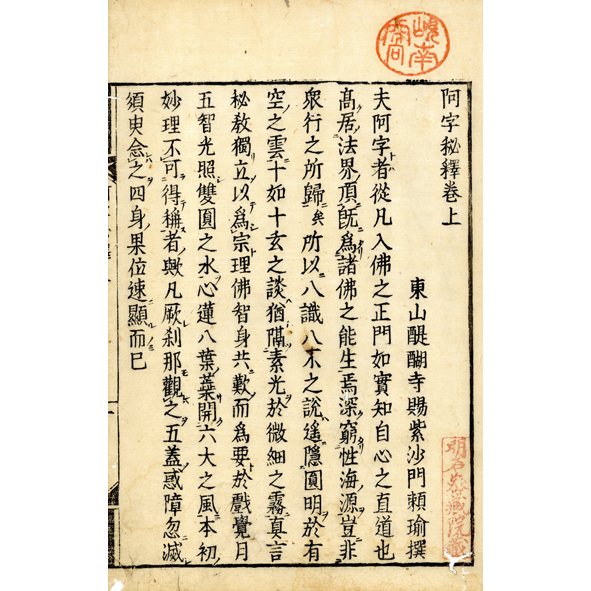 阿字秘釋卷上
東山醍醐寺賜紫沙門頼瑜撰
夫阿字者從凡入佛之正門如實知自心之直道也
高居法界頂既爲諸佛之能生焉深窮性海源豈非
衆行之所歸矣所以八識八不之說遙隱圓明於有
空之雲十如十玄之談猶隔素光於微細之霧真言
秘教獨立以爲宗理佛智身共歎而爲要於戲覺月
五智光照雙圓之水心蓮八葉開六大之風本初
妙理不可得稱者歟凡厥刹那觀之五蓋惑障忽滅
須臾念之四身果位速顯而已